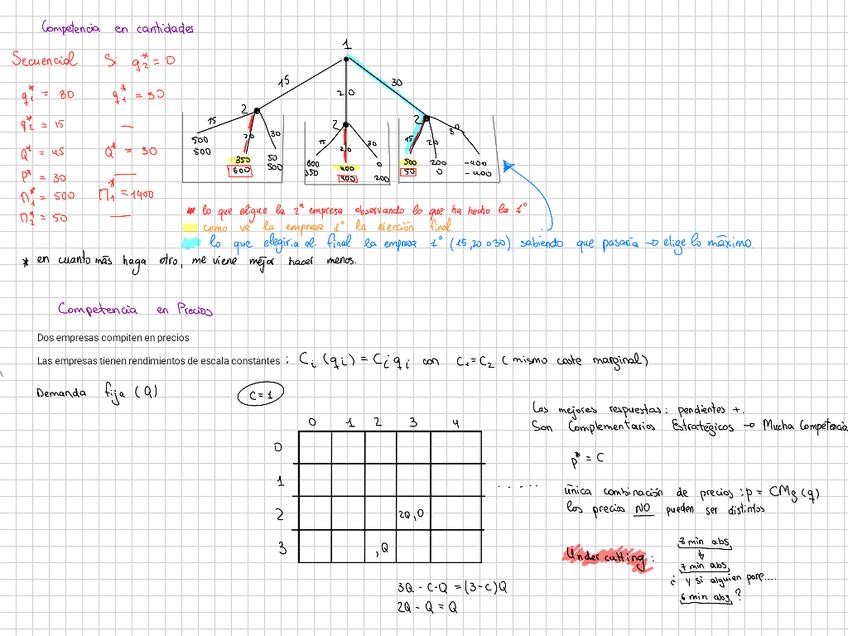 Competencia en cantidades
Secuencial Si q₂* = 0
q₁* = 30 q₁* = 30
q₂* = 15 —
Q* = 45 Q* = 30
P* = 30 —
Π₁* = 500 Π₁* = 1400
Π₂* = 50 —
1
15 20 30
2 2 2
15 20 30 15 20 30 15 20 30
500 350 50 600 400 0 500 200 -400
500 600 500 350 400 200 50 0 -400
lo que eligue la 2ª empresa observando lo que ha hecho la 1º
como vé la empresa 1º la elección final
lo que elegiria al final la empresa 1º (15,20 o 30) sabiendo que pasaria → elige lo máximo
* en cuanto más haga otro, me viene mejor hacer menos.
Competencia en Precios
Dos empresas compiten en precios
Las empresas tienen rendimientos de escala constantes : Cᵢ (qᵢ) = Cᵢ qᵢ con C₁ = C₂ ( mismo coste marginal)
Demanda fija (Q) C = 1
0 1 2 3 4
0
1
2 2Q,0
3 ,Q
.....
3Q - C·Q = (3-C)Q
2Q - Q = Q
Las mejores respuestas : pendientes +.
Son Complementarios Estratégicos → Mucha Competencia
p* = C
única combinación de precios : p = CMg (q)
los precios NO pueden ser distintos
Undercutting :
8 min abs
↓
7 min abs
¿ y si alguien pone....
6 min abs ?